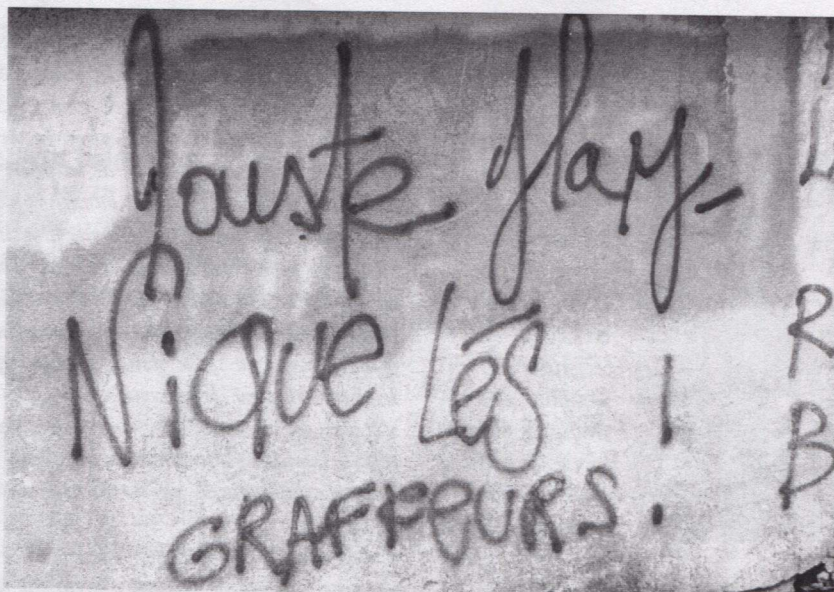 Jouste flay-
NiQUe LeS
GRAFFeURS !
L
R
B